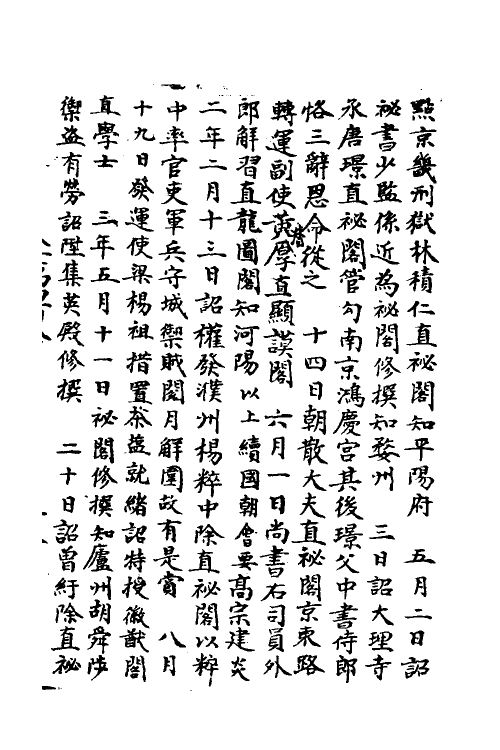 點京畿刑獄林積仁直祕閣知平陽府　五月二日詔
祕書少監係近為祕閣修撰知婺州　三日詔大理寺
丞唐璟直祕閣管勾南京鴻慶宮其後璟父中書侍郎
恪三辭恩命從之　十四日朝散大夫直祕閣京東路
轉運副使黃厚直顯謨閣　六月一日尚書右司員外
郎解習直龍圖閣知河陽以上續國朝會要高宗建炎
二年二月十三日詔權發濮州楊粹中除直祕閣以粹
中率官吏軍兵守城禦賊閱月解圍故有是賞　八月
十九日發運使梁楊祖措置茶鹽就緒詔特授徽猷閣
直學士　三年五月十一日祕閣修撰知廬州胡舜陟
禦盜有勞詔陞集英殿修撰　二十日詔曾紆除直祕